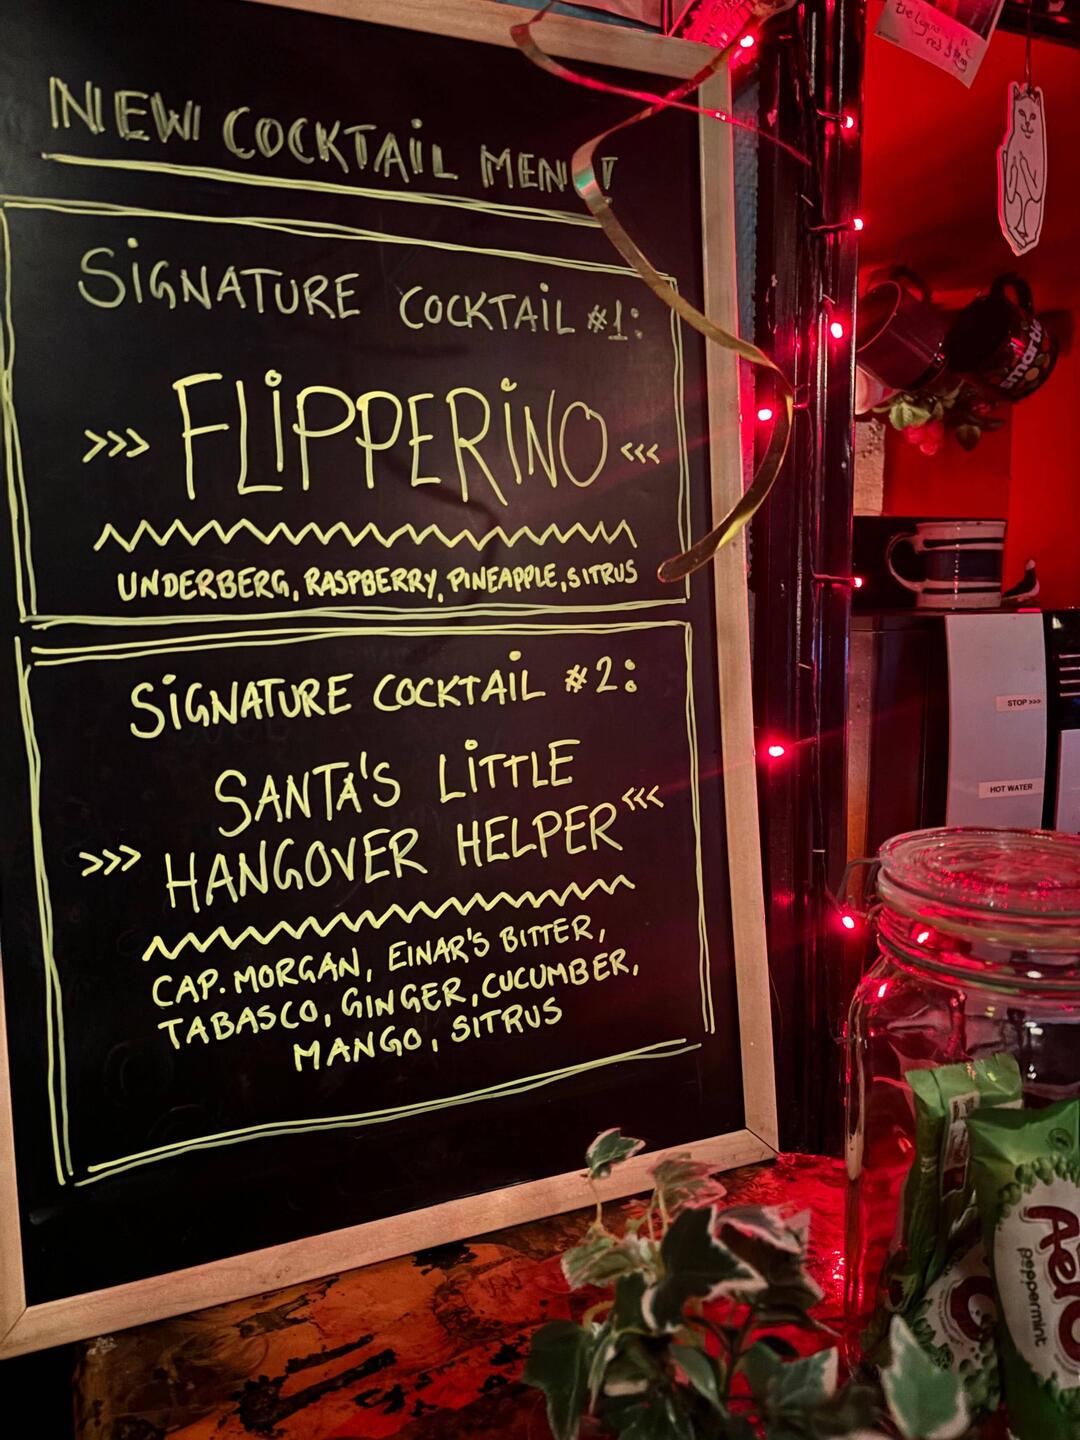 NEW COCKTAIL MENU
SIGNATURE COCKTAIL #1:
>>> FLIPPERINO <<<
UNDERBERG, RASPBERRY, PINEAPPLE, SITRUS
SIGNATURE COCKTAIL #2:
SANTA'S LITTLE
>>> HANGOVER HELPER <<<
CAP. MORGAN, EINAR'S BITTER,
TABASCO, GINGER, CUCUMBER,
MANGO, SITRUS
smartie
STOP >>>
HOT WATER
Aero
peppermint